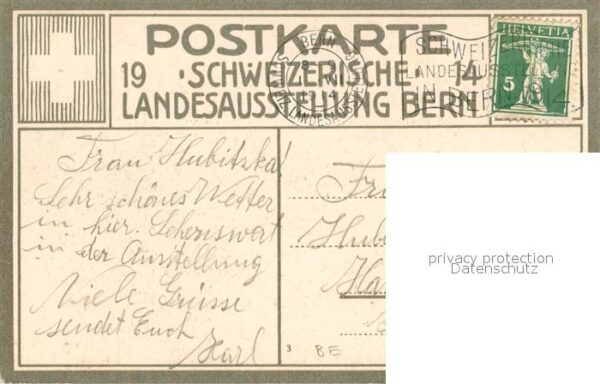 POSTKARTE
19 · SCHWEIZERISCHE · 14
LANDESAUSSTELLUNG BERN
BERN
1914
SCHWEIZ.
LANDESAUSSTELL
IN BERN 1914
HELVETIA
5
Frau Hubitzka!
Sehr schönes Wetter
in hier. Sehenswert
in der Ausstellung
Viele Grüsse
sendet Euch
Karl
Fr
Hub
Ha
3 BE
privacy protection
Datenschutz